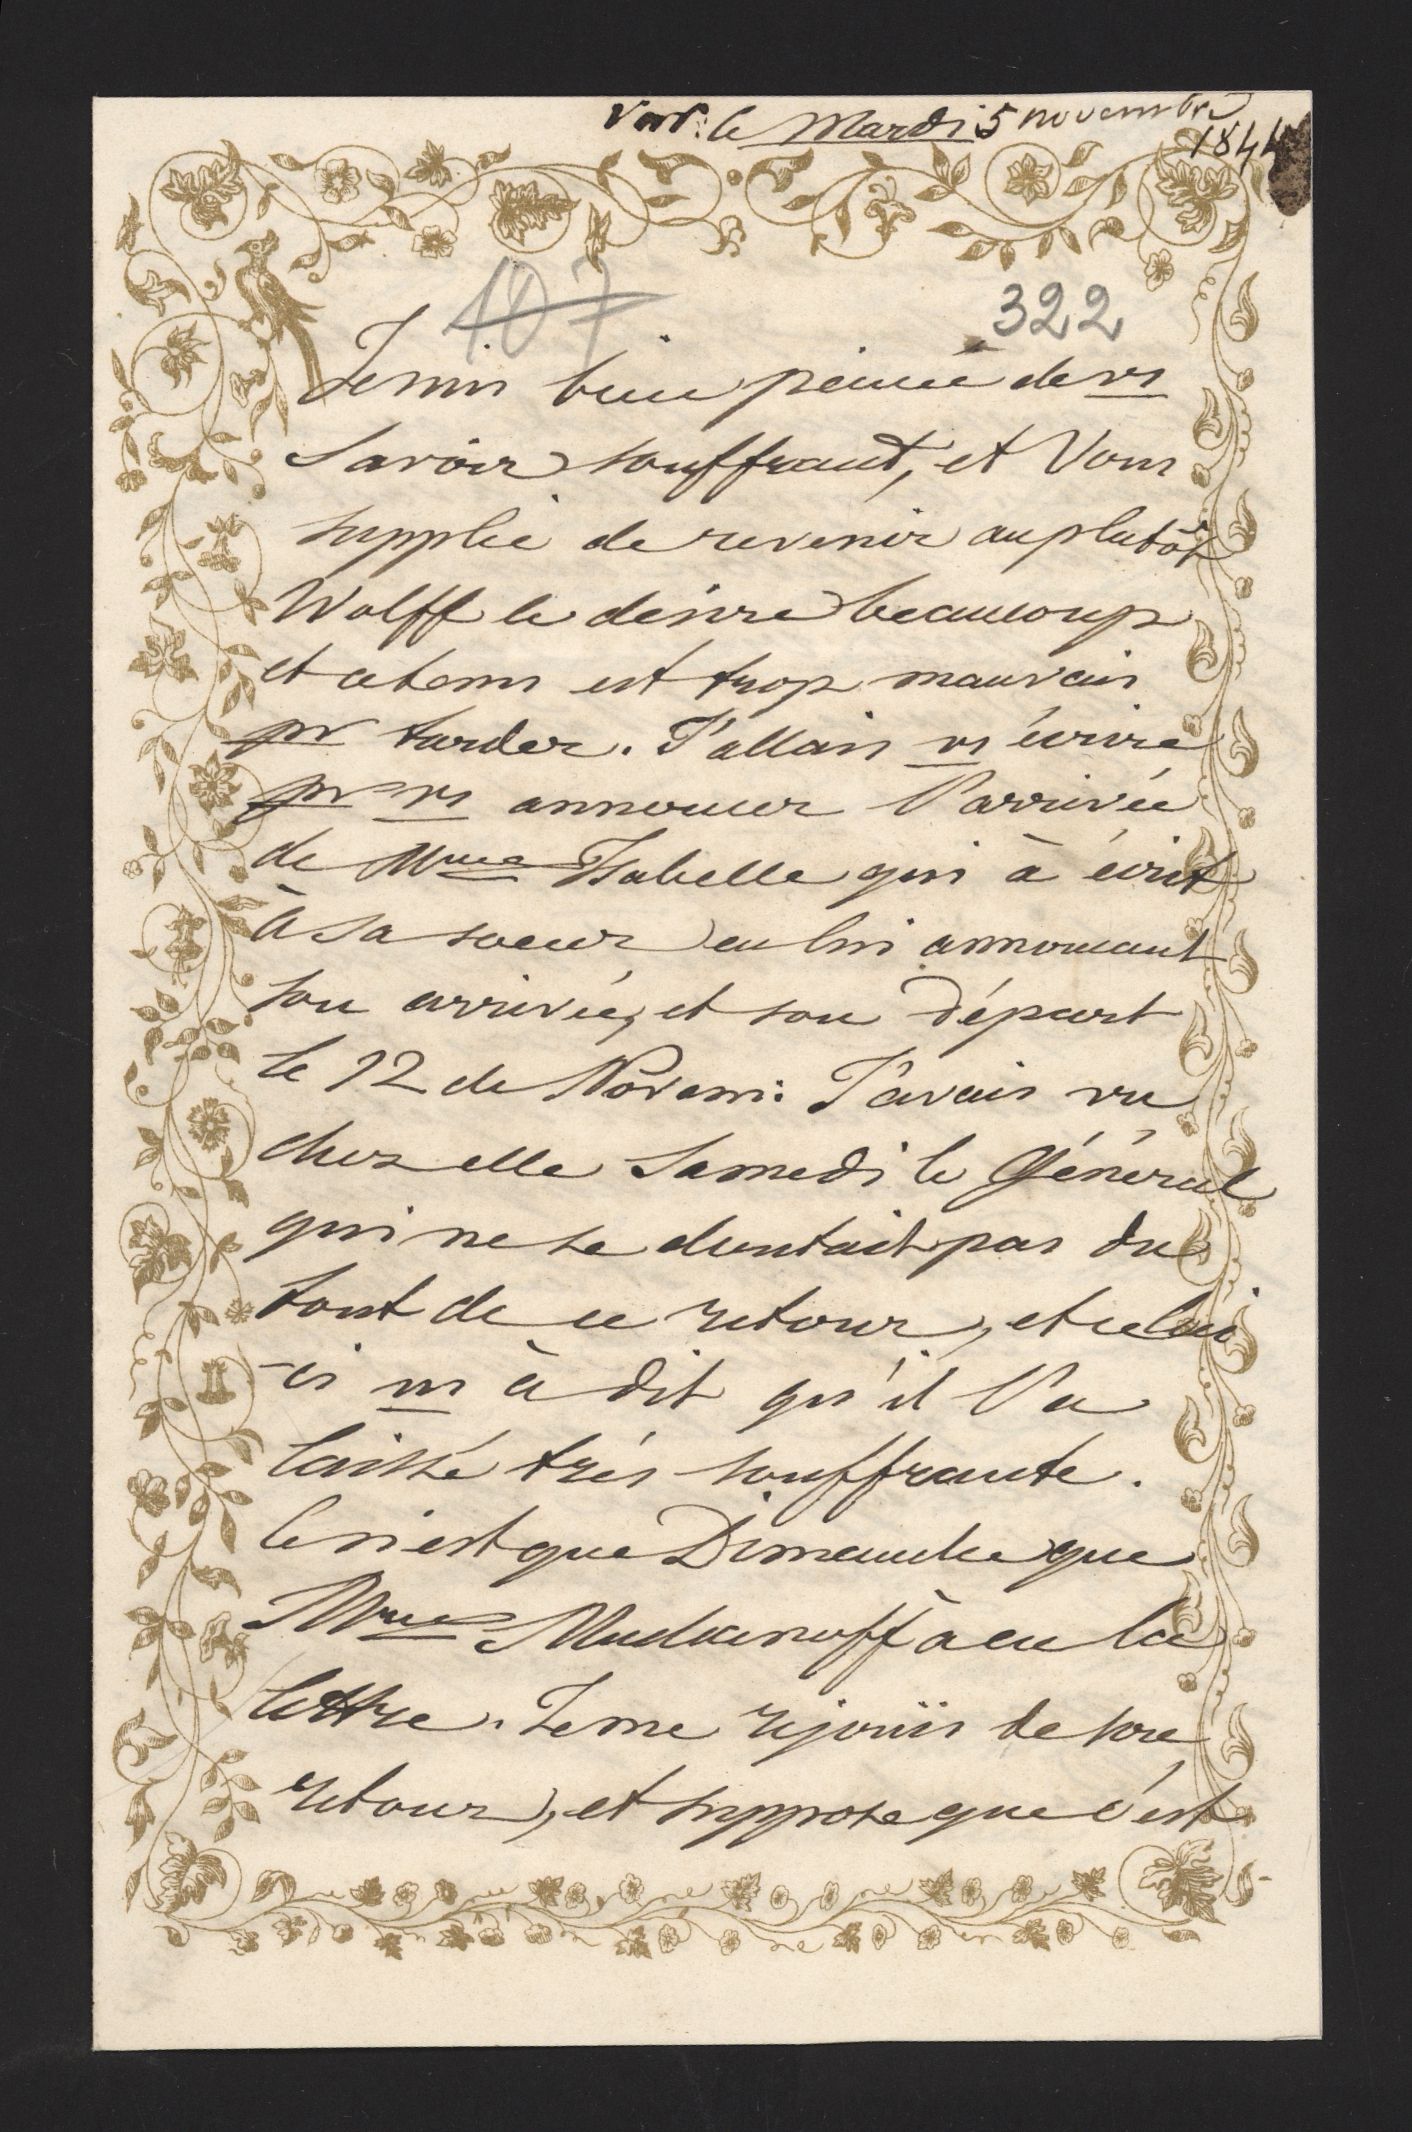 Vars: le Mardi 5 novembre
1844
107
322
Je suis bien peinée de vs
savoir souffrant, et Vous
supplie de revenir au plutôt
Wolff le désire beaucoup
et ce tems est trop mauvais
pr tarder. J'allais vs écrire
pr vs annoncer l'arrivée
de Mme Isabelle qui à écrit
à sa soeur en lui annonçant
son arrivée, et son départ
le 12 de Novem: J'avais vu
chez elle Samedi le Général
qui ne se doutait pas du
tout de ce retour, et celui
-ci m à dit qu'il l'a
laissé très souffrante.
Ce n'est que Dimanche que
Mme Muchanoff à eu la
lettre. Je me rejouis de son
retour, et suppose que c'est